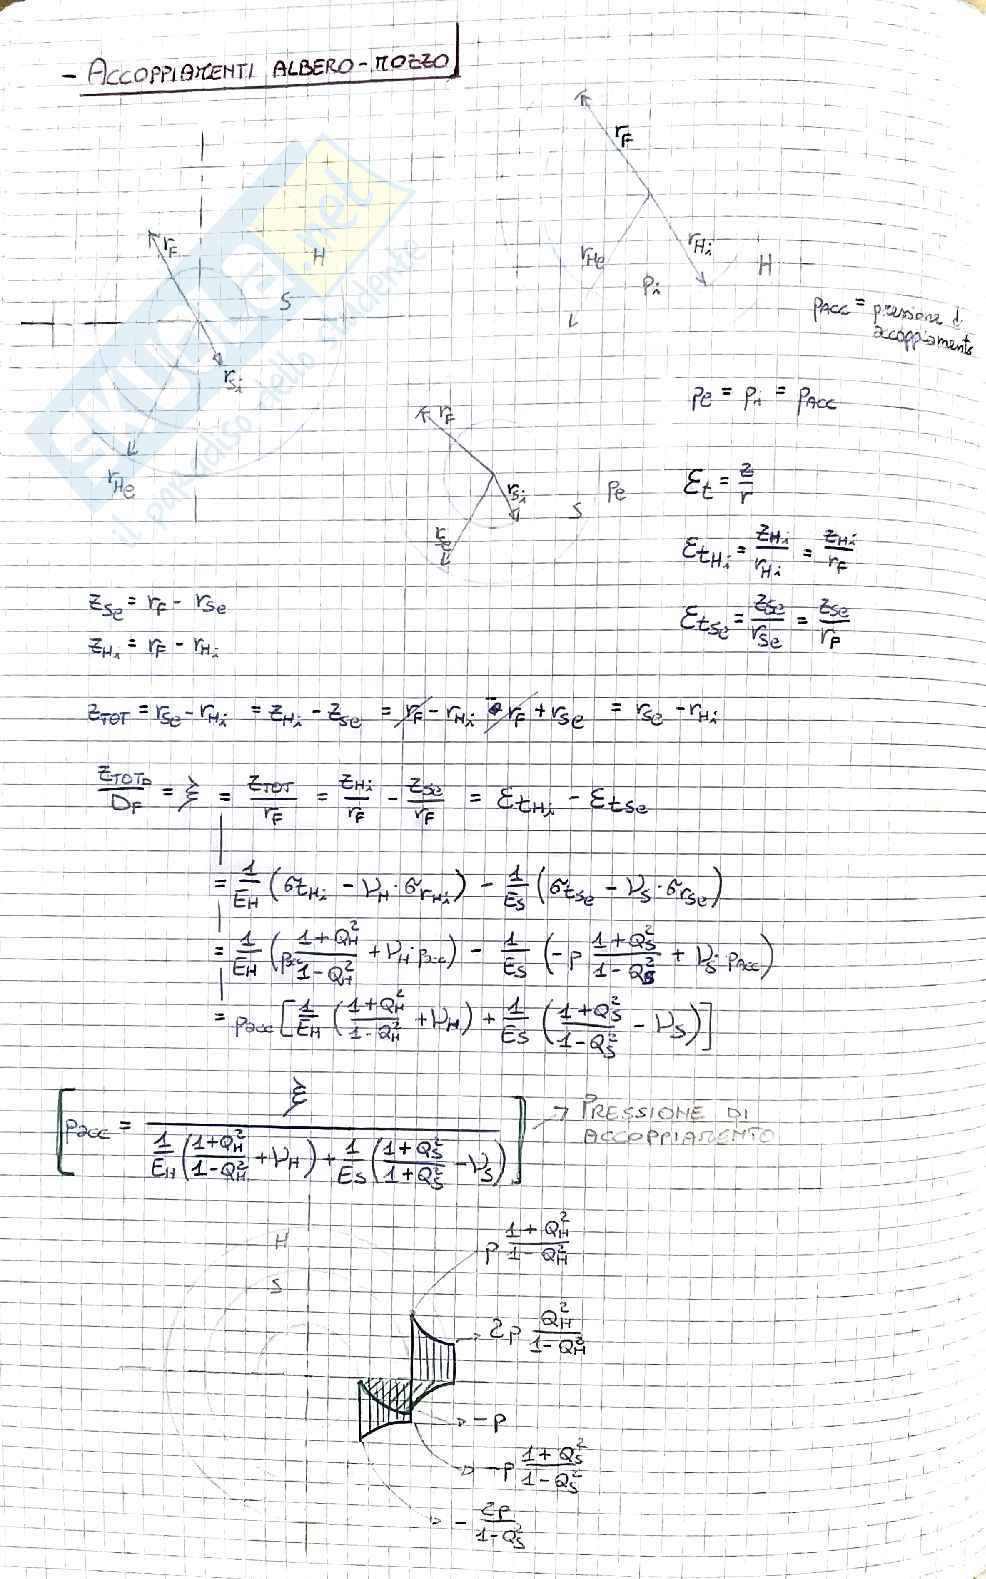 - ACCOPPIAMENTI ALBERO-MOZZO
r_F
r_Hi
r_He
H
p_i
L
p_ACC = pressione di
accoppiamento
r_F
H
S
r_Si
r_He
SKUOLA.net
il paradiso dello studente
p_e = p_i = p_ACC
r_F
r_Si
S
p_e
ε_t = z/r
ε_tHi = z_Hi/r_Hi = z_Hi/r_F
ε_tSe = z_Se/r_Se = z_Se/r_F
z_Se = r_F - r_Se
z_Hi = r_F - r_Hi
z_TOT = r_Se - r_Hi = z_Hi - z_Se = r_F - r_Hi - r_F + r_Se = r_Se - r_Hi
z_TOTD/D_F = ξ = z_TOT/r_F = z_Hi/r_F - z_Se/r_F = ε_tHi - ε_tSe
= 1/E_H (σ_tHi - ν_H · σ_rHi) - 1/E_S (σ_tSe - ν_S · σ_rSe)
= 1/E_H (p_acc (1+Q_H²)/(1-Q_H²) + ν_H · p_acc) - 1/E_S (-p (1+Q_S²)/(1-Q_S²) + ν_S · p_ACC)
= p_acc [1/E_H ((1+Q_H²)/(1-Q_H²) + ν_H) + 1/E_S ((1+Q_S²)/(1-Q_S²) - ν_S)]
[p_acc = ξ / (1/E_H ((1+Q_H²)/(1-Q_H²) + ν_H) + 1/E_S ((1+Q_S²)/(1+Q_S²) - ν_S))] → PRESSIONE DI
ACCOPPIAMENTO
H
S
p (1+Q_H²)/(1-Q_H²)
2p Q_H²/(1-Q_H²)
-p
-p (1+Q_S²)/(1-Q_S²)
- 2p/(1-Q_S²)